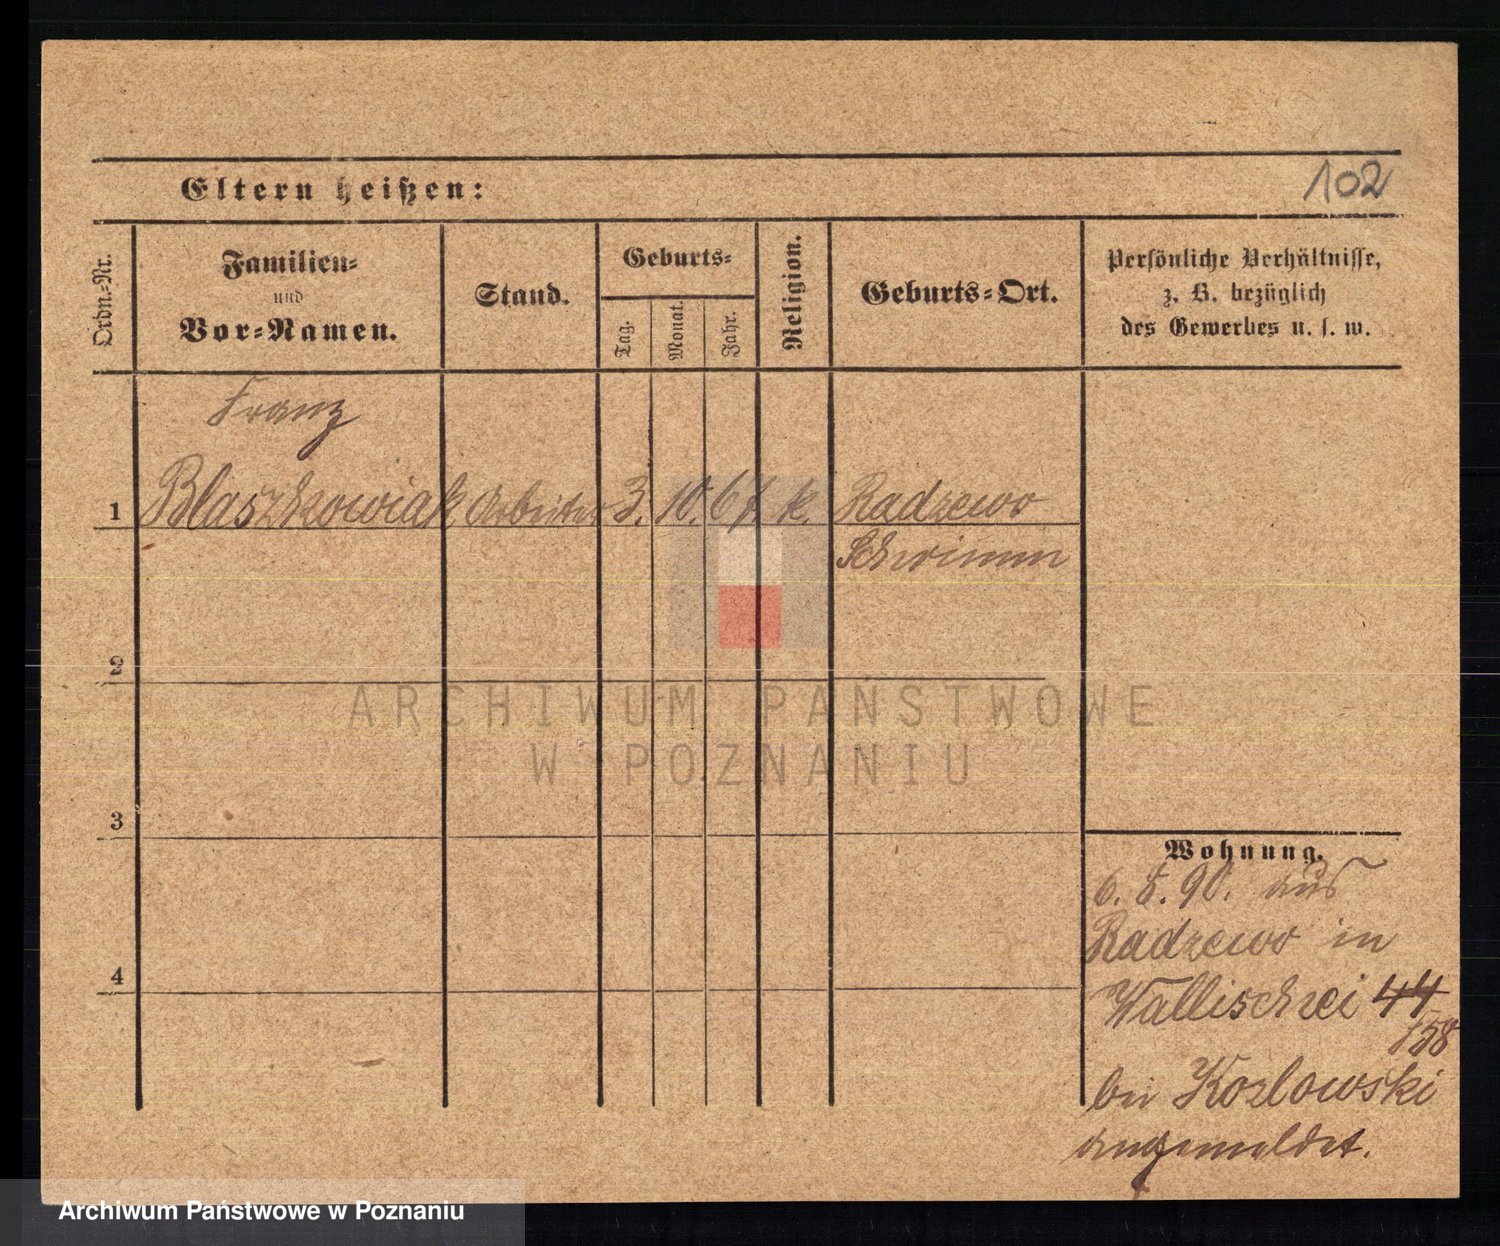 102
Eltern heißen:
Ordn.-Nr.
Familien-
und
Vor-Namen.
Stand.
Geburts-
Tag.
Monat.
Jahr.
Religion.
Geburts-Ort.
Persönliche Verhältnisse,
z. B. bezüglich
des Gewerbes u. s. w.
Franz
1 Blaszkowiak Arbeiter 3. 10. 67. k. Radzewo
Schrimm
2
3
4
Wohnung.
6. 5. 90. aus
Radzewo in
Wallischei 44
/58
bei Kozlowski
angemeldet.
ARCHIWUM PAŃSTWOWE
W POZNANIU
Archiwum Państwowe w Poznaniu